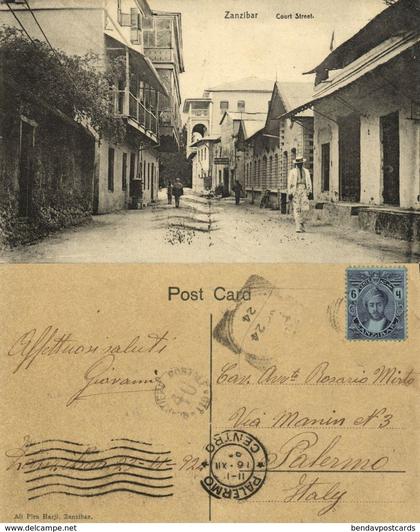 Zanzibar Court Street.
Post Card
6 6
ZANZIBAR
24
24
Affettuosi saluti
Giovanni
Cav. Avv.to Rosario Mirto
Via Manin N. 3
Palermo
Italy
PALERMO
CENTRO
11-1
16·XII
Ali Pira Harji, Zanzibar.